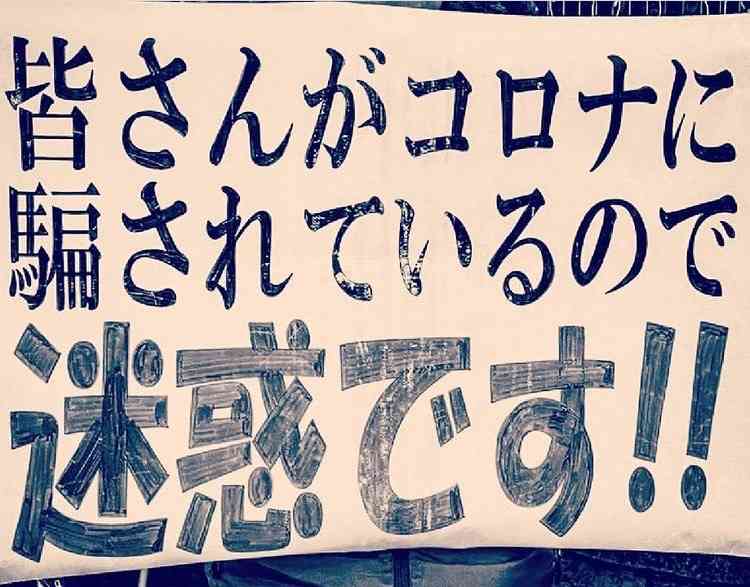 皆さんがコロナに
騙されているので
迷惑です!!